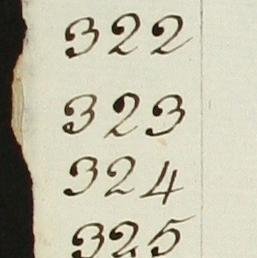 322
323
324
325